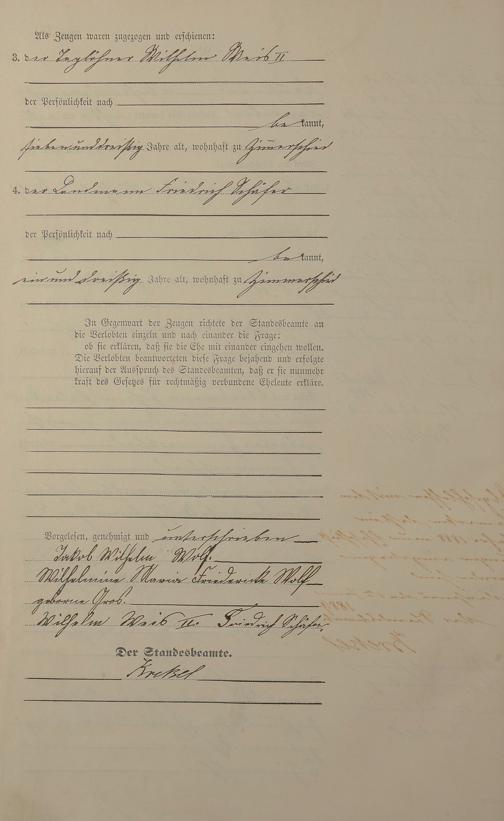 Als Zeugen waren zugezogen und erschienen:
3. der Taglöhner Wilhelm Weis II
der Persönlichkeit nach
be kannt,
siebenunddreißig Jahre alt, wohnhaft zu Zimmerschied
4. der Landmann Friedrich Schäfer
der Persönlichkeit nach
be kannt,
einunddreißig Jahre alt, wohnhaft zu Zimmerschied
In Gegenwart der Zeugen richtete der Standesbeamte an
die Verlobten einzeln und nach einander die Frage:
ob sie erklären, daß sie die Ehe mit einander eingehen wollen.
Die Verlobten beantworteten diese Frage bejahend und erfolgte
hierauf der Ausspruch des Standesbeamten, daß er sie nunmehr
kraft des Gesetzes für rechtmäßig verbundene Eheleute erkläre.
Vorgelesen, genehmigt und unterschrieben
Jakob Wilhelm Wolf.
Wilhelmine Maria Friedericke Wolf
geborne Gros.
Wilhelm Weis II. Friedrich Schäfer.
Der Standesbeamte.
Krekel